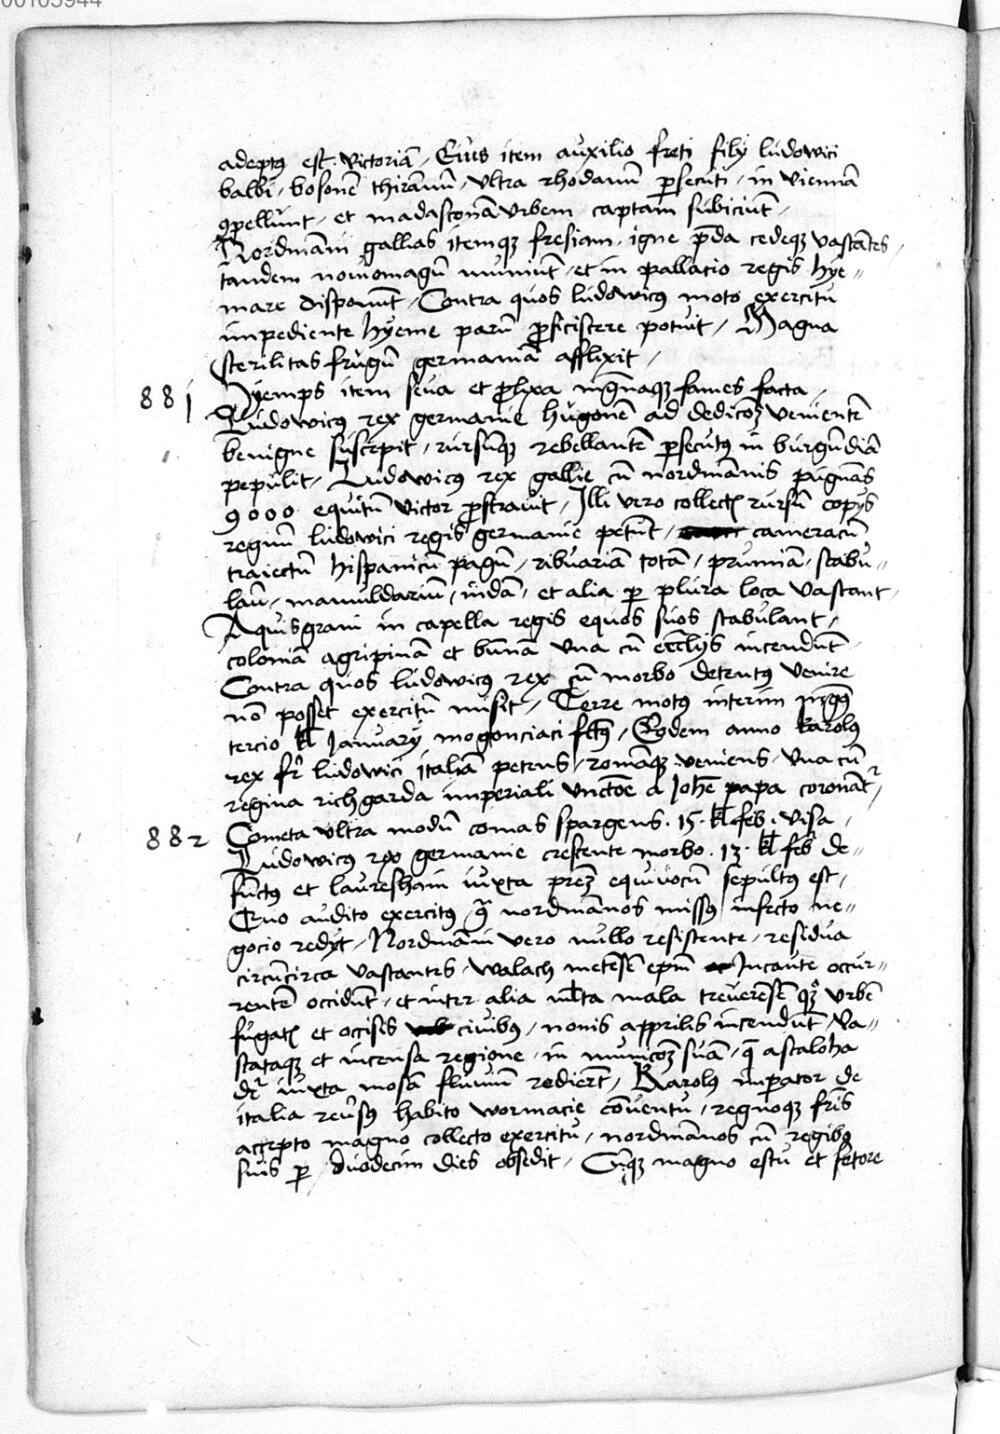 00103944
adeptꝯ est victoriā / Eius item auxilio freti filij ludowici
balbi / bosonē thirānū / vltra rhodanū ꝑsecuti / in viennā
ꝯpellunt / et madasconā vrbem captam subiciūt /
Nordmāni gallias itemqꝫ fresiam / igne p̄da cedeqꝫ vastātes /
tandem noviomagū muniūt / et in pallacio regis hye=
mare disponūt / Contra quos ludowicꝯ moto exercitu
impediente hyeme parū ꝓficiscere potuit / Magna
sterilitas frugū germaniā afflixit /
881 Hyemps item seva et ꝓlixa mḡnaqꝫ fames facta /
Ludowicꝯ rex germanie hugonē ad dedicōꝫ venientē
benigne suscepit / rursūqꝫ rebellantē ꝑsecutꝯ in burgūdiā
pepulit / Ludowicꝯ rex gallie cū nordmānis pugnās
9000 equitū victor ꝓstravit / Illi vero collectꝭ rursū copijs
regnū ludowici regis germanie petūt / cameracū
traiectū hispanicū pagū / ribuariā totā / prumiā / stabu=
laū / mamuldariū / indā / et alia ꝑ plura loca vastant /
Aquisgrani in capella regis equos suos stabulant /
coloniā agripinā et bunnā vna cū eccl̄ijs incendūt /
Contra quos ludowicꝯ rex cū morbo detentꝯ venire
nō posset exercitū misit / Terre motꝯ interim mḡꝯ
tercio kl̄ January mogonciaci fctꝯ / Eodem anno karolꝯ
rex fr̄ ludowici italiā petens / romāqꝫ veniens / vna cū
regina richgarda imperiali vnctōe a Johē papa coronāt᷑ /
882 Cometa vltra modū comas spargens . 15 . kl̄ feb . visa /
Ludowicꝯ rex germanie crescente morbo . 13 . kl̄ feb de=
fūctꝯ et lauresham iuxta pr̄eꝫ equivocū sepultꝯ est /
Quo audito exercitꝯ q̄ nordmānos missꝯ infecto ne=
gocio redyt / Nordmāni vero nullo resistente / residua
circūcirca vastantes / walach metēsē ep̄m incaute occur=
rentē occidūt / et inter alia ml̄ta mala treverēsē qꝫ vrbē
fugatꝭ et occisis civibꝯ / nonis apprilis incendūt / Va=
stataqꝫ et incensa regione / in municōꝫ suā / q̄ ascaloha
dr̄ iuxta mosā fluviū redierūt / Karolꝯ imꝑator de
italia reuersꝯ habito wormacie cōventu / regnoqꝫ fr̄is
accepto magno collecto exercitu / nordmānos cū regibꝯ
suis ꝑ duodecim dies obsedit / Cūqꝫ magno estu et fetore